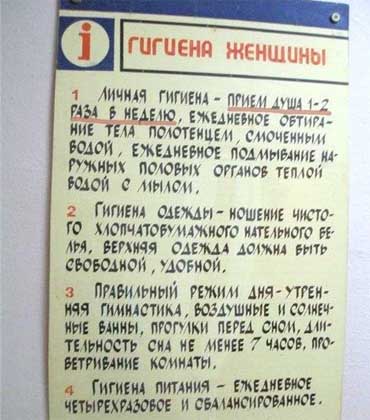 i ГИГИЕНА ЖЕНЩИНЫ
1 ЛИЧНАЯ ГИГИЕНА - ПРИЕМ ДУША 1-2
РАЗА В НЕДЕЛЮ, ЕЖЕДНЕВНОЕ ОБТИРА-
НИЕ ТЕЛА ПОЛОТЕНЦЕМ, СМОЧЕННЫМ
ВОДОЙ, ЕЖЕДНЕВНОЕ ПОДМЫВАНИЕ НА-
РУЖНЫХ ПОЛОВЫХ ОРГАНОВ ТЕПЛОЙ
ВОДОЙ С МЫЛОМ.
2 ГИГИЕНА ОДЕЖДЫ - НОШЕНИЕ ЧИСТО-
ГО ХЛОПЧАТОБУМАЖНОГО НАТЕЛЬНОГО БЕ-
ЛЬЯ, ВЕРХНЯЯ ОДЕЖДА ДОЛЖНА БЫТЬ
СВОБОДНОЙ, УДОБНОЙ.
3 ПРАВИЛЬНЫЙ РЕЖИМ ДНЯ - УТРЕН-
НЯЯ ГИМНАСТИКА, ВОЗДУШНЫЕ И СОЛНЕЧ-
НЫЕ ВАННЫ, ПРОГУЛКИ ПЕРЕД СНОМ, ДЛИ-
ТЕЛЬНОСТЬ СНА НЕ МЕНЕЕ 7 ЧАСОВ, ПРО-
ВЕТРИВАНИЕ КОМНАТЫ.
4 ГИГИЕНА ПИТАНИЯ - ЕЖЕДНЕВНОЕ
ЧЕТЫРЕХРАЗОВОЕ И СБАЛАНСИРОВАННОЕ.